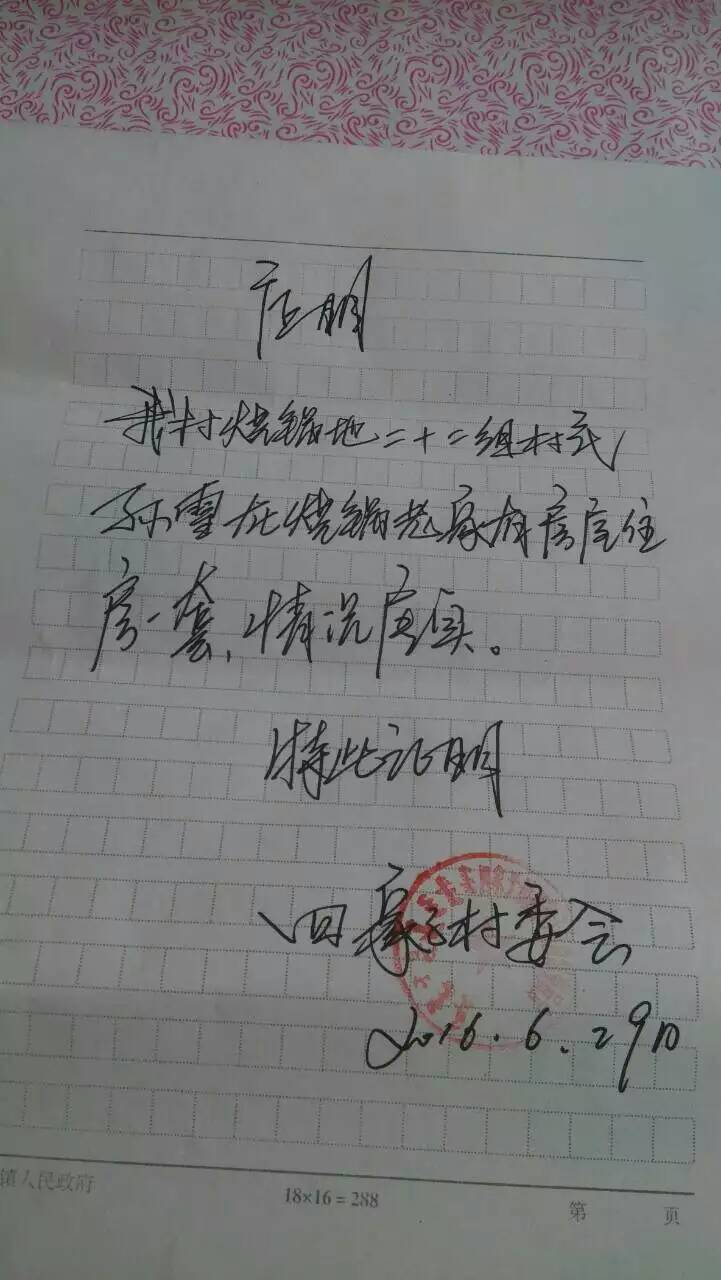 证明
我村烧锅地二十二组村民
孙雪在烧锅地家有房屋住
房一套,情况属实。
特此证明
四家子村委会
2016.6.29日
镇人民政府
18×16=288
第 页